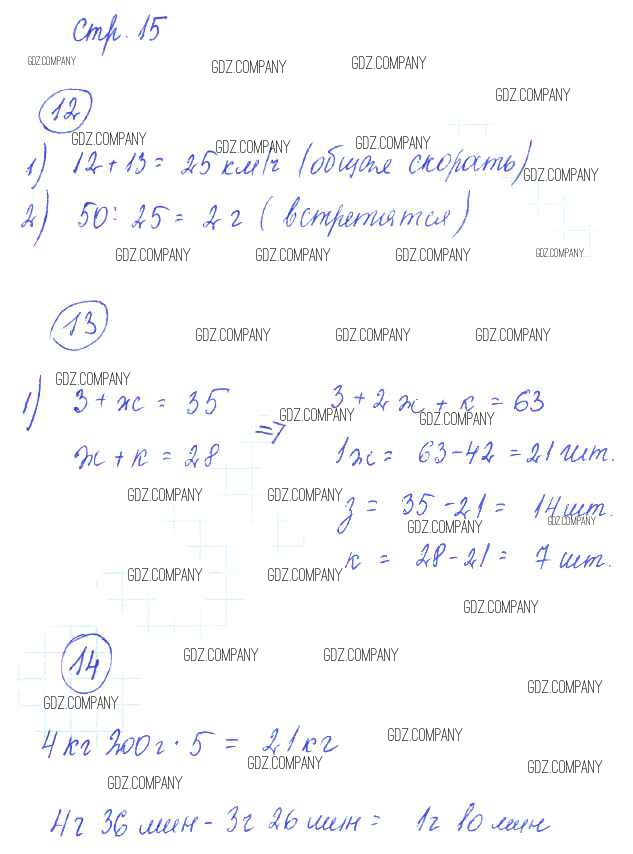 стр. 15
GDZ.COMPANY GDZ.COMPANY GDZ.COMPANY
GDZ.COMPANY
12
GDZ.COMPANY GDZ.COMPANY GDZ.COMPANY
1) 12 + 13 = 25 км/г (общая скорать)
GDZ.COMPANY
2) 50 : 25 = 2 г (встретятся)
GDZ.COMPANY GDZ.COMPANY GDZ.COMPANY GDZ.COMPANY
13
GDZ.COMPANY GDZ.COMPANY GDZ.COMPANY
GDZ.COMPANY
1) З + ж = 35 З + 2ж + к = 63
GDZ.COMPANY GDZ.COMPANY
ж + к = 28 => 1ж = 63 - 42 = 21 шт.
GDZ.COMPANY GDZ.COMPANY
з = 35 - 21 = 14 шт.
GDZ.COMPANY GDZ.COMPANY
к = 28 - 21 = 7 шт.
GDZ.COMPANY GDZ.COMPANY
GDZ.COMPANY
14
GDZ.COMPANY GDZ.COMPANY
GDZ.COMPANY
GDZ.COMPANY
4 кг 200 г · 5 = 21 кг
GDZ.COMPANY
GDZ.COMPANY GDZ.COMPANY
GDZ.COMPANY
4г 36 мин - 3г 26 мин = 1г 10 мин